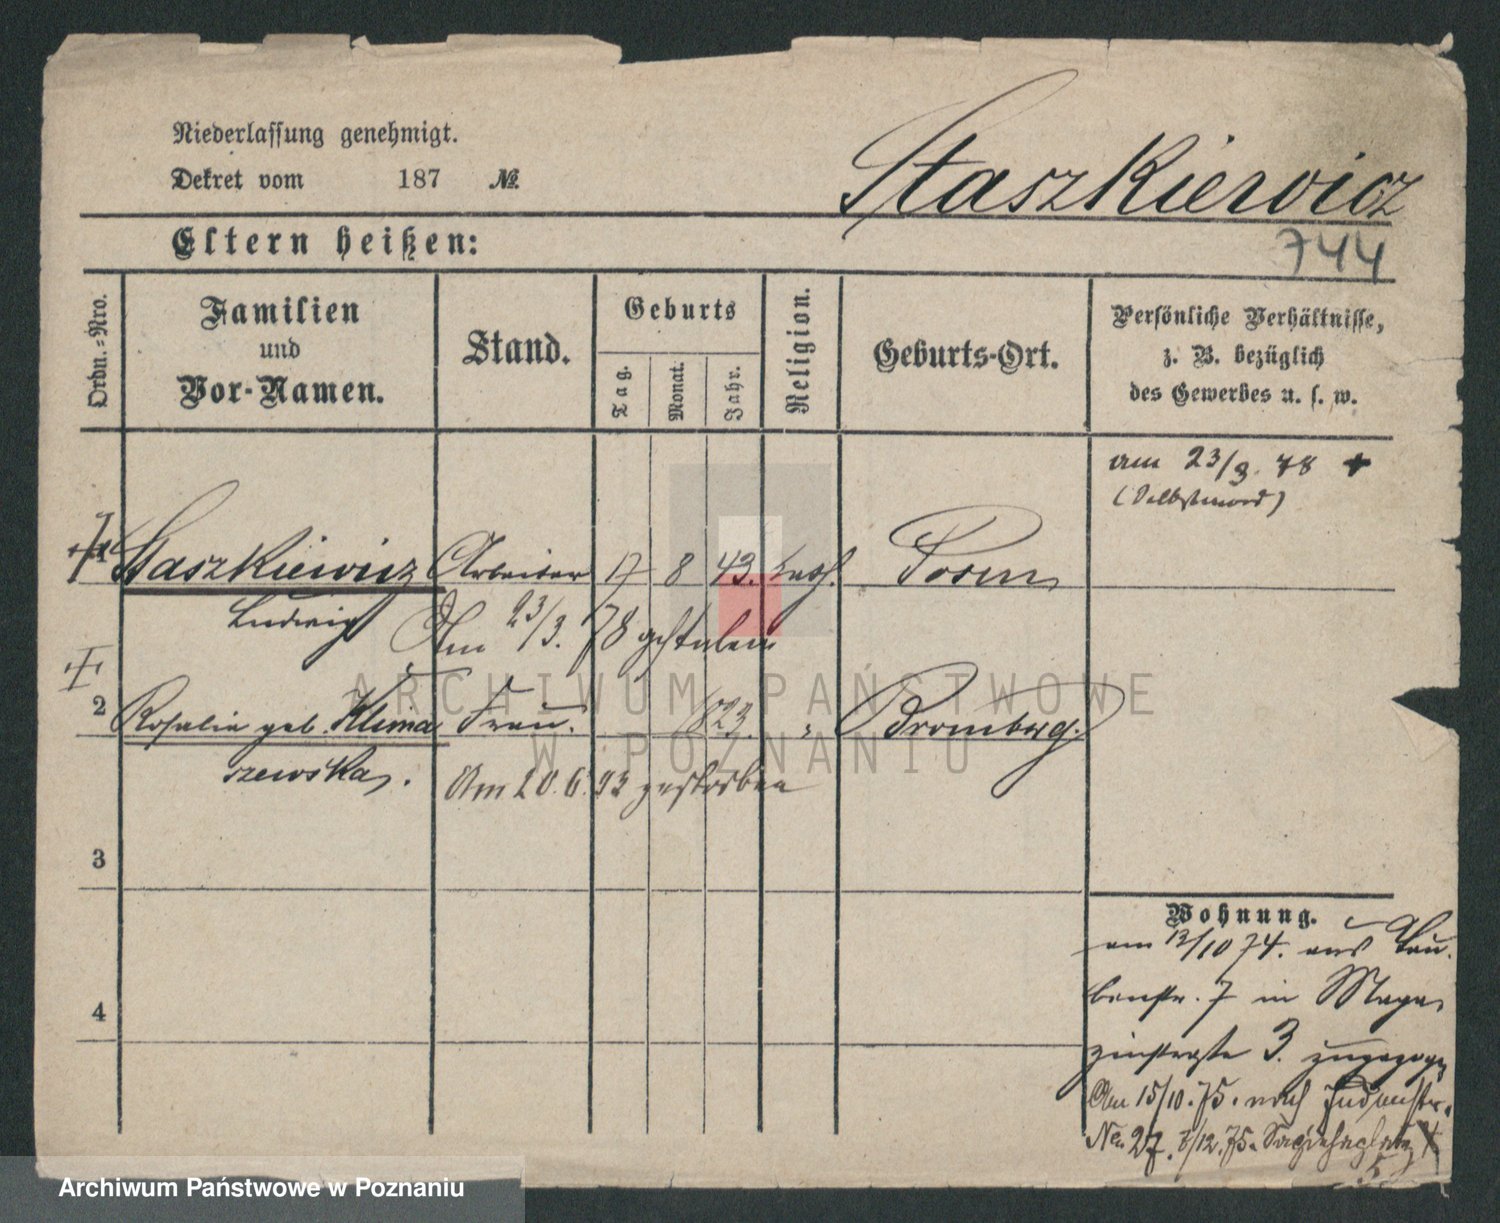 Niederlassung genehmigt.
Dekret vom 187 №
Staszkiewicz
744
Eltern heißen:
Ordn.-Nro.
Familien
und
Vor-Namen.
Stand.
Geburts
Tag.
Monat.
Jahr.
Religion.
Geburts-Ort.
Persönliche Verhältnisse,
z. B. bezüglich
des Gewerbes u. s. w.
am 23/3. 78 +
(Selbstmord)
1 Staszkiewicz Arbeiter 17 8 43. kath. Posen
Ludwig Am 23/3. 78 gestorben
2 Rosalie geb. Klima Frau. 1823. " Bromberg.
szewska. Am 20.6.93 gestorben
3
4
Wohnung.
am 12/10 74. aus Tau-
benstr. 7 in Maga-
zinstraße 3. zugezogen
Am 15/10. 75. nach Judenstr.
No. 27. 8/12. 75.
ARCHIWUM PAŃSTWOWE
W POZNANIU
Archiwum Państwowe w Poznaniu